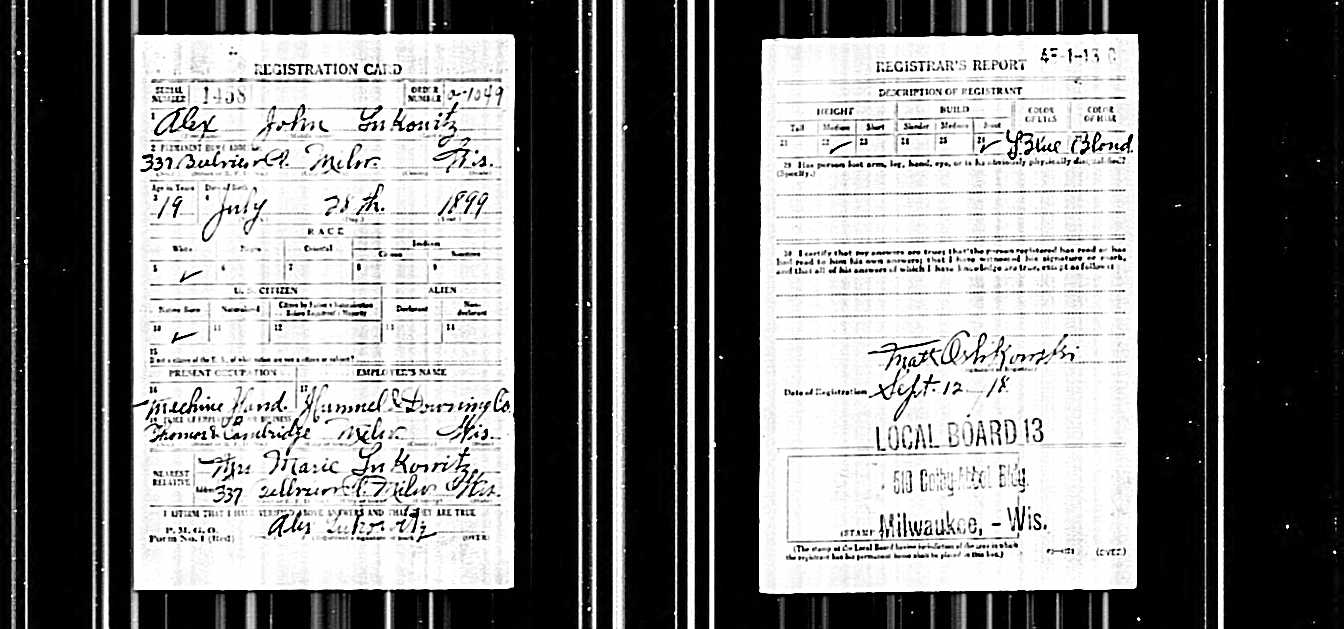 REGISTRATION CARD
SERIAL NUMBER 1458 ORDER NUMBER a-1049
1 Alex John Lukowitz
2 PERMANENT HOME ADDRESS
337 Bellview Pl. Milw. Wis.
Age in Years Date of birth
3 19 4 July 28th. 1899
RACE
White Negro Oriental Indian
Citizen Noncitizen
5 ✓ 6 7 8 9
U. S. CITIZEN ALIEN
Native Born Naturalized Citizen by Father's Naturalization Before Registrant's Majority Declarant Non-declarant
10 ✓ 11 12 13 14
15
If not a citizen of the U. S., of what nation are you a citizen or subject?
PRESENT OCCUPATION EMPLOYER'S NAME
16 Mechine Hand. 17 Hummel & Downing Co
Thomas & Cambridge Milw. Wis.
NEAREST RELATIVE Mrs Marie Lukowitz
Address 337 Bellview Pl. Milw Wis.
I AFFIRM THAT I HAVE VERIFIED ABOVE ANSWERS AND THAT THEY ARE TRUE
P. M. G. O.
Form No. 1 (Red) Alex Lukowitz (OVER)
REGISTRAR'S REPORT
DESCRIPTION OF REGISTRANT
HEIGHT BUILD COLOR OF EYES COLOR OF HAIR
Tall Medium Short Slender Medium Stout
21 22 ✓ 23 24 25 26 ✓ Blue Blond
29 Has person lost arm, leg, hand, eye, or is he obviously physically disqualified?
(Specify.)
30 I certify that my answers are true; that the person registered has read or has
had read to him his own answers; that I have witnessed his signature or mark,
and that all of his answers of which I have knowledge are true, except as follows:
Matt Oshkowski
Date of Registration Sept. 12 18
LOCAL BOARD 13
Colby-Abbot Bldg.
(STAMP Milwaukee, - Wis.
(The stamp of the Local Board having jurisdiction of the area in which
the registrant has his permanent home shall be placed in this box.) (OVER)